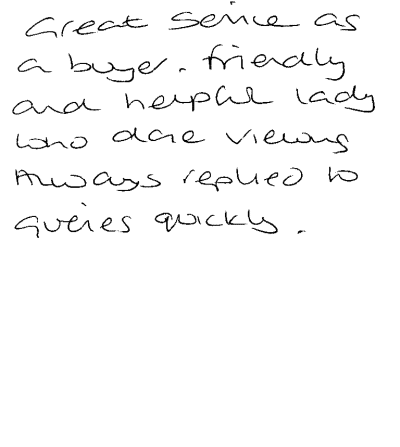 Great service as
a buyer. friendly
and helpful lady
who done viewing
Always replied to
queries quickly.